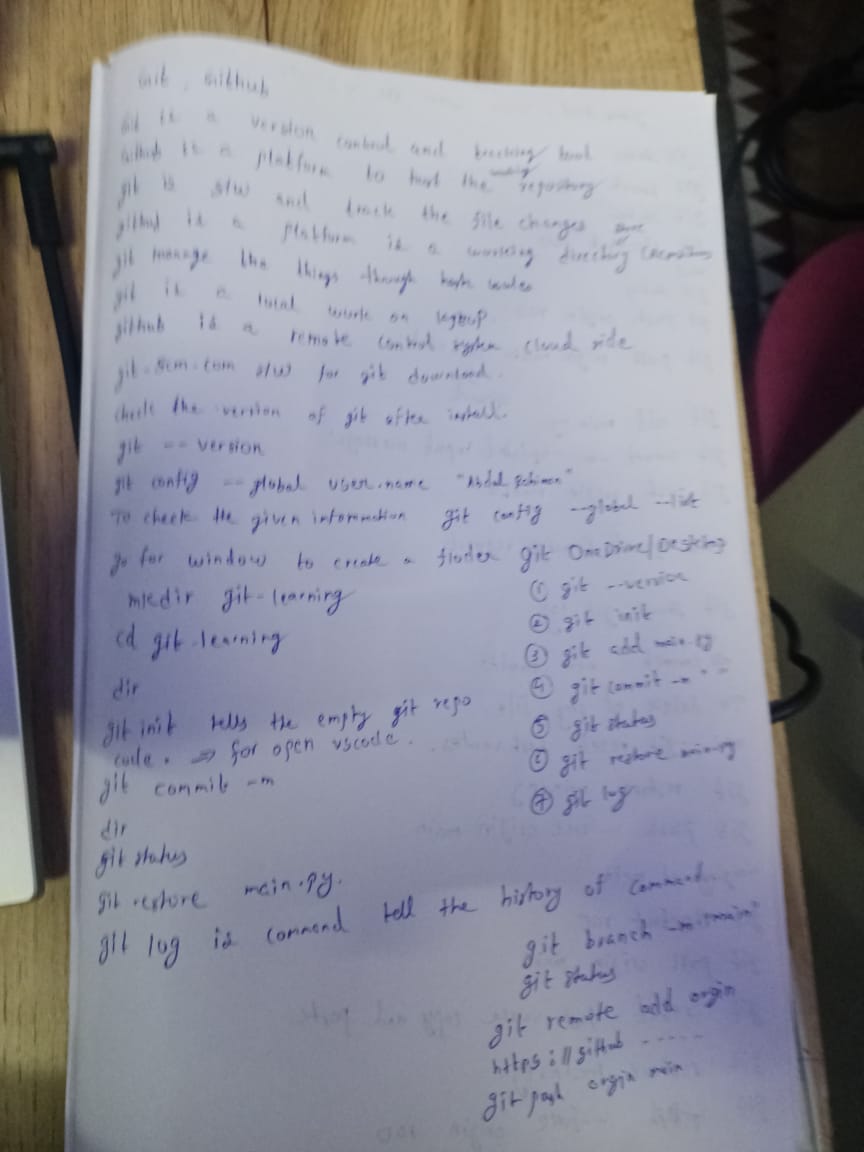 Git, Github
Git is a version control and tracking tool
Github is a platform to host the repository
git is s/w and track the file changes
github is a platform is a working directory
git manage the things through hash codes
git is a local work on laptop
github is a remote control system cloud side
git-scm.com s/w for git download.
check the version of git after install.
git -- version
git config --global user.name "Abdul
To check the given information git config --global --list
go for window to create a floder git OneDrive/Desktop
mkdir git-learning
cd git-learning
dir
git init tells the empty git repo
code . => for open vscode.
git commit -m
dir
git status
git restore main.py.
git log is command tell the history of command
① git --version
② git init
③ git add main.py
④ git commit -m " "
⑤ git status
⑥ git restore main.py
⑦ git log
git branch -m "main"
git status
git remote add orgin
https://github ------
git push orgin main